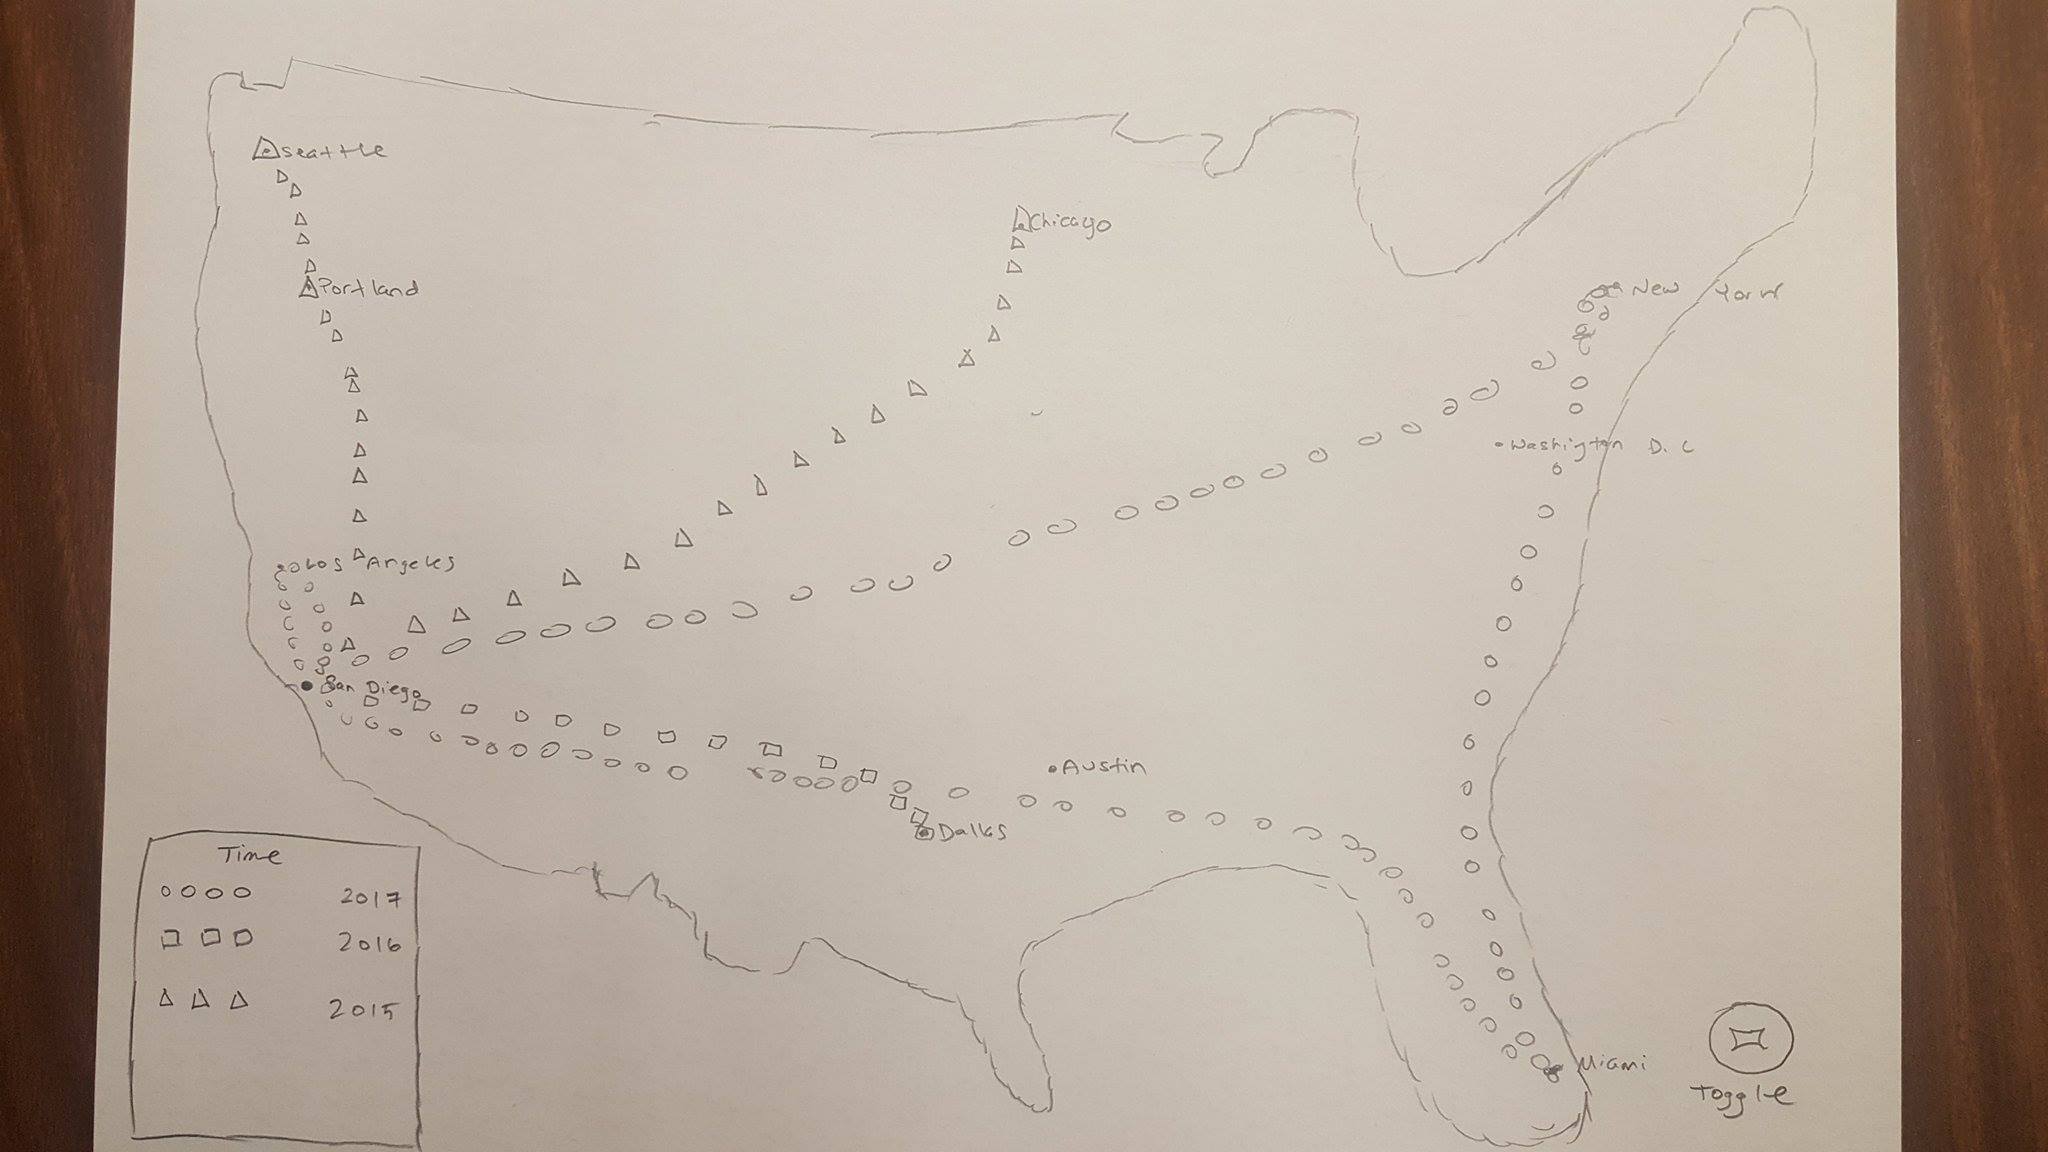 Seattle
Chicago
Portland
New York
Washington D.C
Los Angeles
San Diego
Austin
Dallas
Miami
Time
2017
2016
2015
Toggle